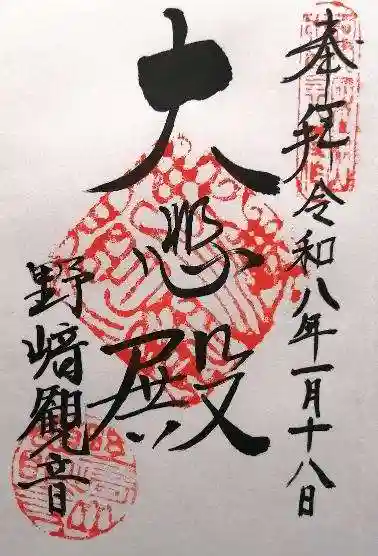 奉拝 令和八年一月十八日
大悲殿
野﨑觀音